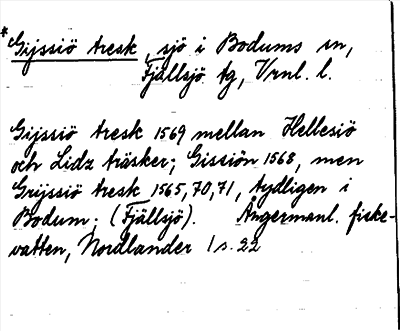 *Gijssiö tresk, sjö i Bodums sn,
Fjällsjö tg, Vrnl. l.
Gijssiö tresk 1569 mellan Hellesiö
och Lidz träsker; Gissiön 1568, men
Grijssiö tresk 1565, 70, 71, tydligen i
Bodum; (Fjällsjö). Ångermanl. fiske-
vatten, Nordlander / s. 22